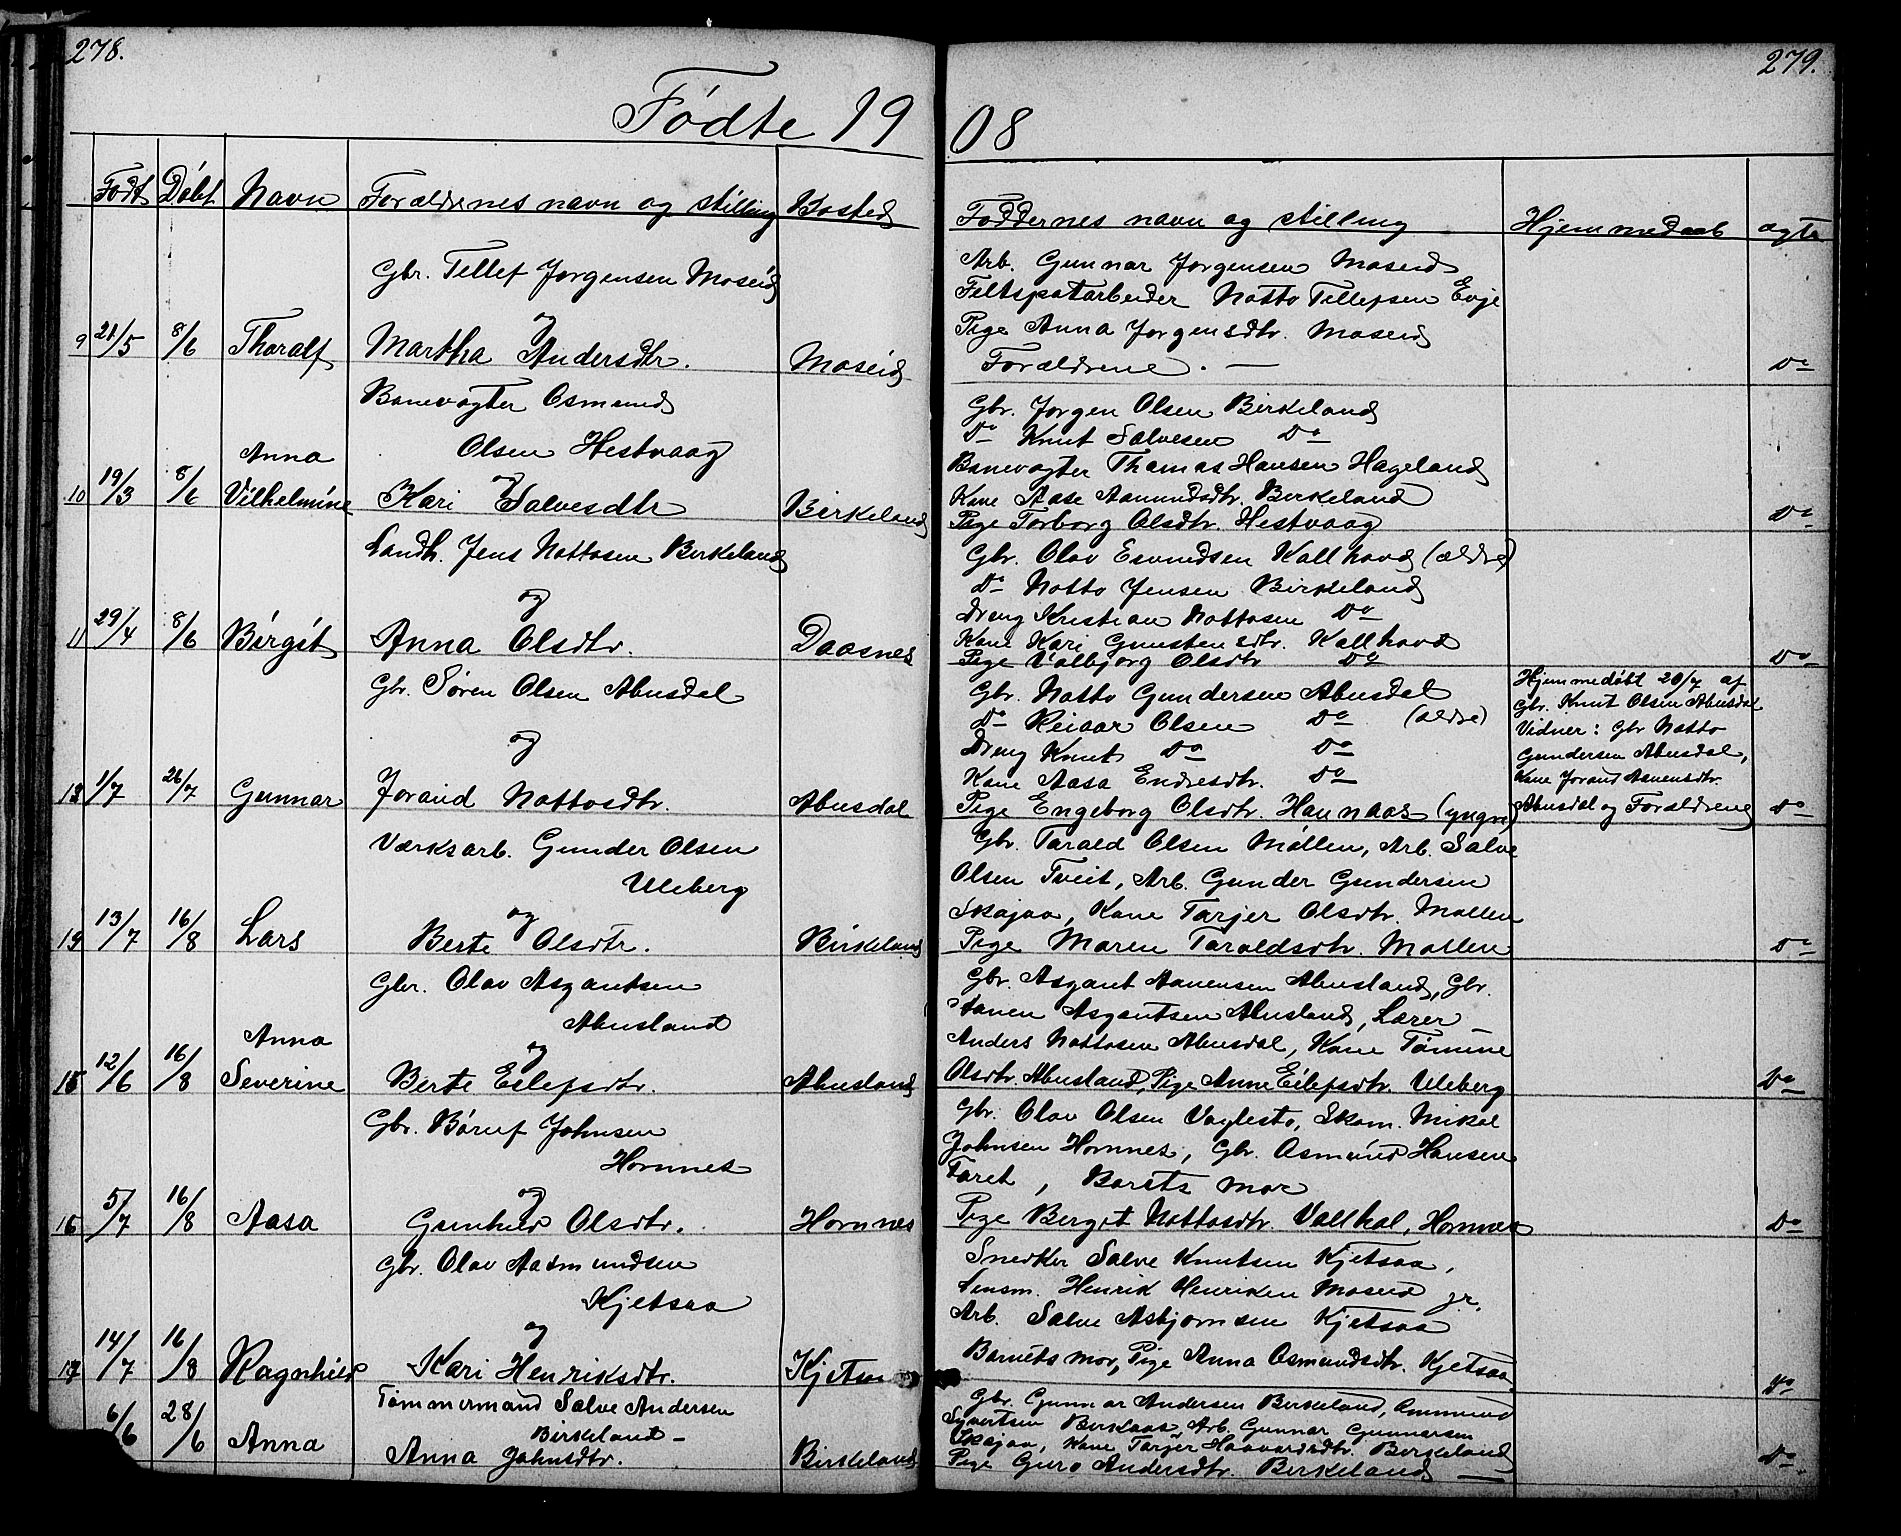 278.
279.
Fødte 1908
Født Døbt Navn Forældrenes navn og stilling Bosted
Faddernes navn og stilling Hjemmedaab ægte
Gbr. Tellef Jørgensen Moseid
og
9 21/5 8/6 Thoralf Martha Andersdtr. Moseid
Arb. Gunnar Jørgensen Moseid
Feltspatarbeider Notto Tellefsen Evje
Pige Anna Jørgensdtr. Moseid
Forældrene. — Do
Banevogter Osmund
Olsen Hestvaag
Anna
og
10 19/3 8/6 Vilhelmine Kari Salvesdtr Birkeland
Gbr. Jørgen Olsen Birkeland
Do Knut Salvesen Do
Banevogter Thomas Hansen Hageland
Kone Aase Aamundsdtr. Birkeland
Pige Torborg Olsdtr. Hestvaag Do
Landh. Jens Nottosen Birkeland
og
11 29/4 8/6 Birgit Anna Olsdtr. Daasnes
Gbr. Olav Evundsen Kallhovd (ældre)
Do Notto Jensen Birkeland
Dreng Kristian Nottosen Do
Kone Kari Gunstensdtr. Kallhovd
Pige Valbjørg Olsdtr Do Do
Gbr. Søren Olsen Abusdal
og
13 1/7 26/7 Gunnar Joraud Nottosdtr. Abusdal
Gbr. Notto Gundersen Abusdal
Do Reiaar Olsen Do (ældre)
Dreng Knut Do Do
Kone Aasa Endresdtr. Do
Pige Engeborg Olsdtr. Haunaas (yngre)
Hjemmedøbt 20/7 af
Gbr. Knut Olsen Abusdal
Vidner: Gbr Notto
Gundersen Abusdal,
Kone Joraud Aanensdtr.
Abusdal og Forældrene Do
Værksarb. Gunder Olsen
Uleberg
og
19 13/7 16/8 Lars Berte Olsdtr. Birkeland
Gbr. Tarald Olsen Møllen, Arb. Salve
Olsen Tveit, Arb. Gunder Gundersen
Skajaa, Kone Tarjer Olsdtr. Møllen
Pige Maren Taraldsdtr. Møllen Do
Gbr. Olav Asgautsen
Abusland
Anna
og
15 12/6 16/8 Severine Berte Eilefsdtr. Abusland
Gbr. Asgaut Aanensen Abusland, Gbr.
Aanen Asgautsen Abusland, Lærer
Anders Nottosen Abusdal, Kone Tomine
Olsdtr. Abusland, Pige Anne Eilefsdtr. Uleberg Do
Gbr. Børuf Johnsen
Hornnes
og
16 5/7 16/8 Aasa Gunhild Olsdtr. Hornnes
Gbr. Olav Olsen Vaglesto, Skom. Mikal
Johnsen Hornnes, Gbr. Osmund Hansen
Faret, Barnets mor
Pige Berget Nottosdtr. Vallhal, Hornnes Do
Gbr. Olav Aasmundsen
Kjetsaa
og
17 14/7 16/8 Ragnhild Kari Henriksdtr. Kjetsaa
Snedker Salve Knutsen Kjetsaa,
Lensm. Henrik Henriksen Moseid jr.
Arb. Salve Asbjørnsen Kjetsaa
Barnets mor, Pige Anna Osmundsdtr. Kjetsaa. Do
Tømmermand Salve Andersen
Birkeland —
6/6 28/6 Anna Anna Johnsdtr. Birkeland
Gbr. Gunnar Andersen Birkeland, Ommund
Syvertsen Birkaas, Arb. Gunnar Gunnarsen
Skajaa, Kone Tarjer Haavardsdtr. Birkeland
Pige Guro Andersdtr. Birkeland — Do